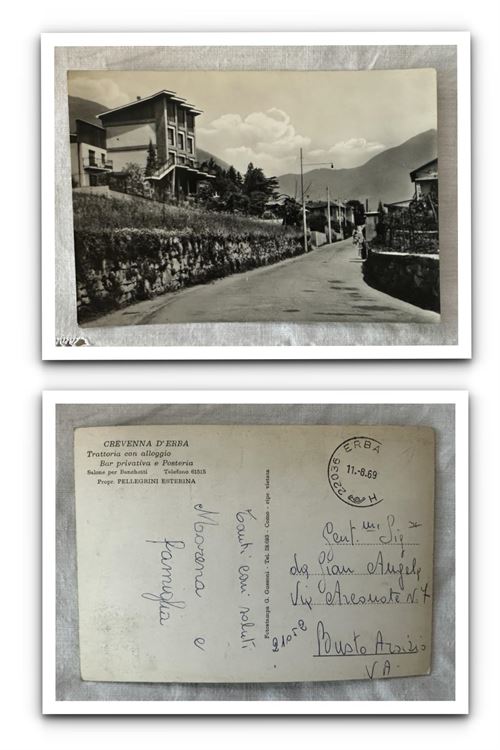 CREVENNA D'ERBA
Trattoria con alloggio
Bar privativa e Posteria
Salone per Banchetti Telefono 61515
Propr. PELLEGRINI ESTERINA
Tanti cari saluti
Morena e
famiglia
Fotostampa G. Gusmeni - Tel. - Como - ripr. vietata
22036 ERBA
11.-8.69
H
Gent.
Gian Angelo
Via Arconate N. 7
21052
Busto Arsizio
VA.